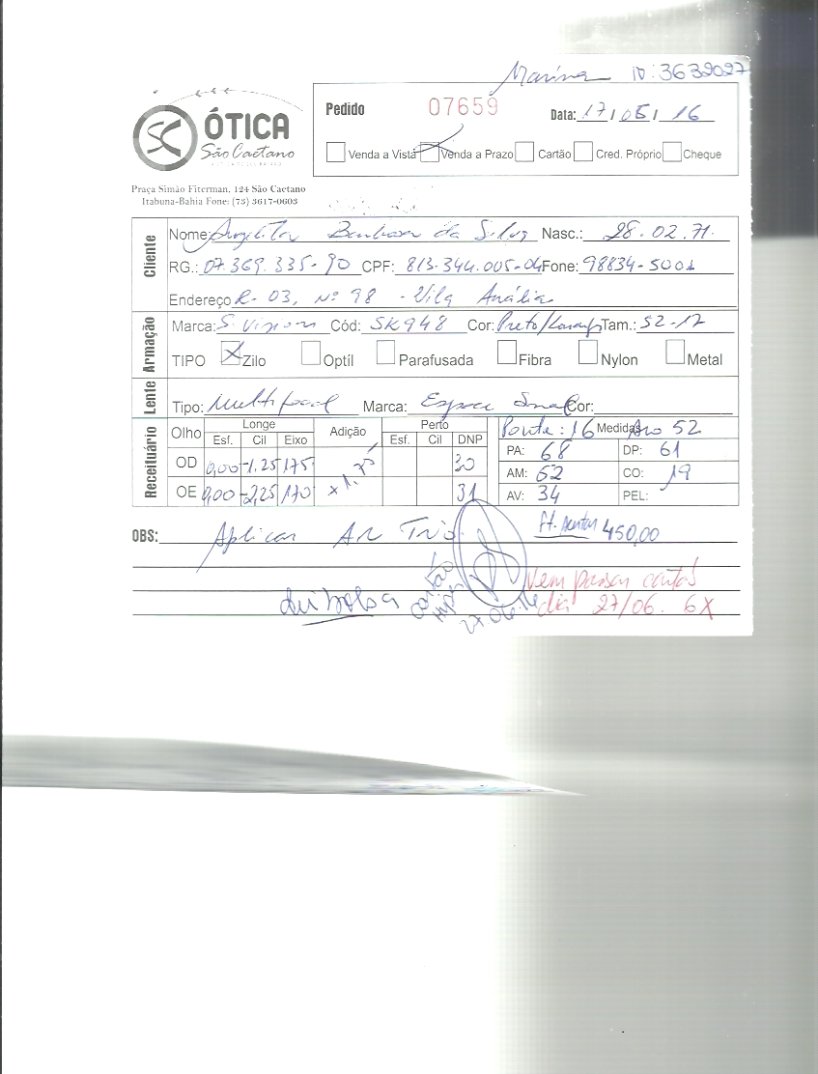 Marina ID: 3639027
ÓTICA
São Caetano
Praça Simão Fiterman, 124 São Caetano
Itabuna-Bahia Fone: (73) 3617-0603
Pedido 07659 Data: 17/05/16
Venda a Vista Venda a Prazo Cartão Cred. Próprio Cheque
Cliente
Nome: Barbosa da Silva Nasc.: 28.02.71.
RG.: 07.369.335-90 CPF: 813.344.005-04 Fone: 98834-5001
Endereço R. 03, Nº 98 - Vila Anália
Armação
Marca: S. Vision Cód: SK948 Cor: Preto/ Tam.: 52-17
TIPO X Zilo Optíl Parafusada Fibra Nylon Metal
Lente
Tipo: Multifocal Marca: Espace Cor:
Receituário
Olho Longe Adição Perto Ponte: 16 Medidas Aro 52
Esf. Cil Eixo Esf. Cil DNP
OD 0,00 -1,25 175 30
OE 0,00 -2,25 170 31
PA: 68 DP: 61
AM: 52 CO: 19
AV: 34 PEL:
OBS: Aplicar AR Trio 450,00
cartão
27.06.16
Vem passar cartão
dia 27/06. 6X